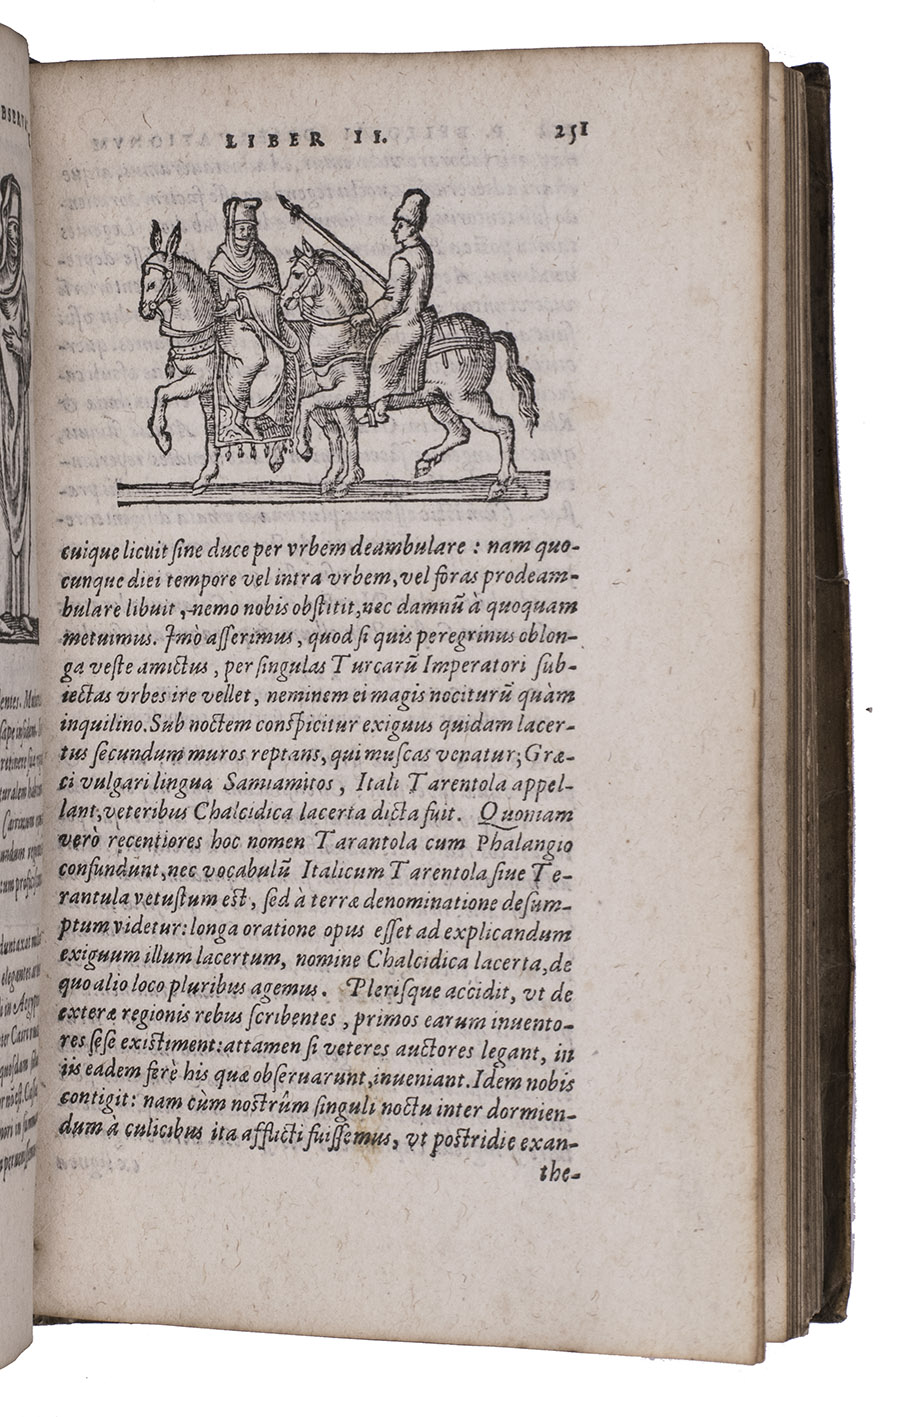 LIBER II. 251
cuique licuit ſine duce per vrbem deambulare : nam quo-
cunque diei tempore vel intra vrbem, vel foras prodeam-
bulare libuit, nemo nobis obſtitit, nec damnũ à quoquam
metuimus. Imò aſſerimus, quod ſi quis peregrinus oblon-
ga veſte amictus, per ſingulas Turcarũ Imperatori ſub-
iectas vrbes ire vellet, neminem ei magis nociturũ quàm
inquilino. Sub noctem conſpicitur exiguus quidam lacer-
tus ſecundum muros reptans, qui muſcas venatur; Græ-
ci vulgari lingua Samiamitos, Itali Tarentola appel-
lant, veteribus Chalcidica lacerta dicta fuit. Quoniam
verò recentiores hoc nomen Tarantola cum Phalangio
confundunt, nec vocabulũ Italicum Tarentola ſiue Te-
rantula vetuſtum eſt, ſed à terræ denominatione deſum-
ptum videtur: longa oratione opus eſſet ad explicandum
exiguum illum lacertum, nomine Chalcidica lacerta, de
quo alio loco pluribus agemus. Pleriſque accidit, vt de
exteræ regionis rebus ſcribentes, primos earum inuento-
res ſeſe exiſtiment: attamen ſi veteres auctores legant, in
iis eadem ferè his quæ obſeruarunt, inueniant. Idem nobis
contigit: nam cùm noſtrûm ſinguli noctu inter dormien-
dum à culicibus ita afflicti fuiſſemus, vt poſtridie exan-
the-